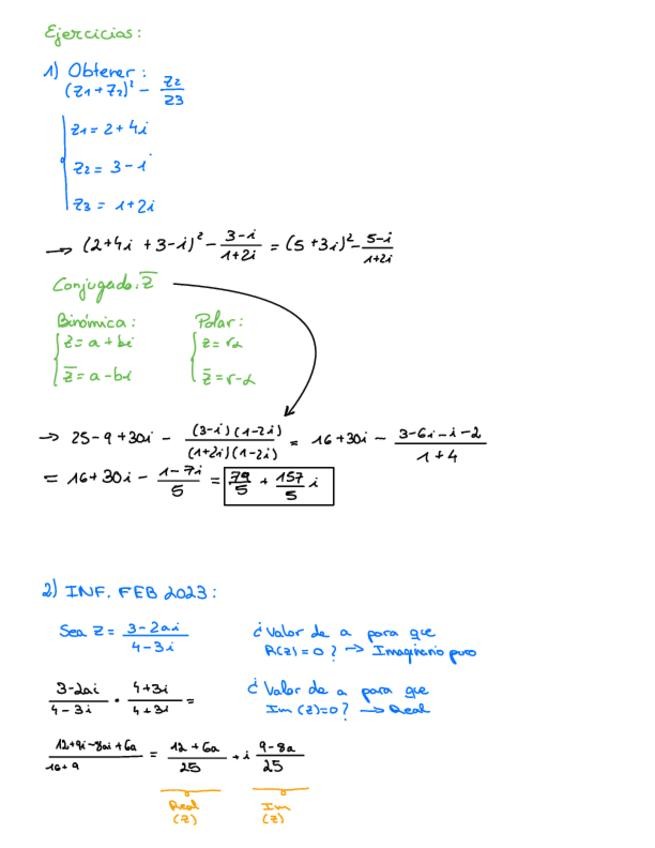 Ejercicios:
1) Obtener:
(z1+z2)² - z2/z3
z1 = 2+4i
z2 = 3-i
z3 = 1+2i
→ (2+4i+3-i)² - (3-i)/(1+2i) = (5+3i)² - (5-i)/(1+2i)
Conjugado: z̅
Binómica: Polar:
z = a+bi z = rα
z̅ = a-bi z̅ = r-α
→ 25-9+30i - (3-i)(1-2i)/(1+2i)(1-2i) = 16+30i - (3-6i-i-2)/(1+4)
= 16+30i - (1-7i)/5 = 79/5 + 157/5 i
2) INF. FEB 2023:
Sea z = (3-2ai)/(4-3i) ¿Valor de a para que
R(z)=0? → Imaginario puro
(3-2ai)/(4-3i) · (4+3i)/(4+3i) = ¿Valor de a para que
Im(z)=0? → Real
(12+9i-8ai+6a)/(16+9) = (12+6a)/25 + i (9-8a)/25
Real Im
(z) (z)